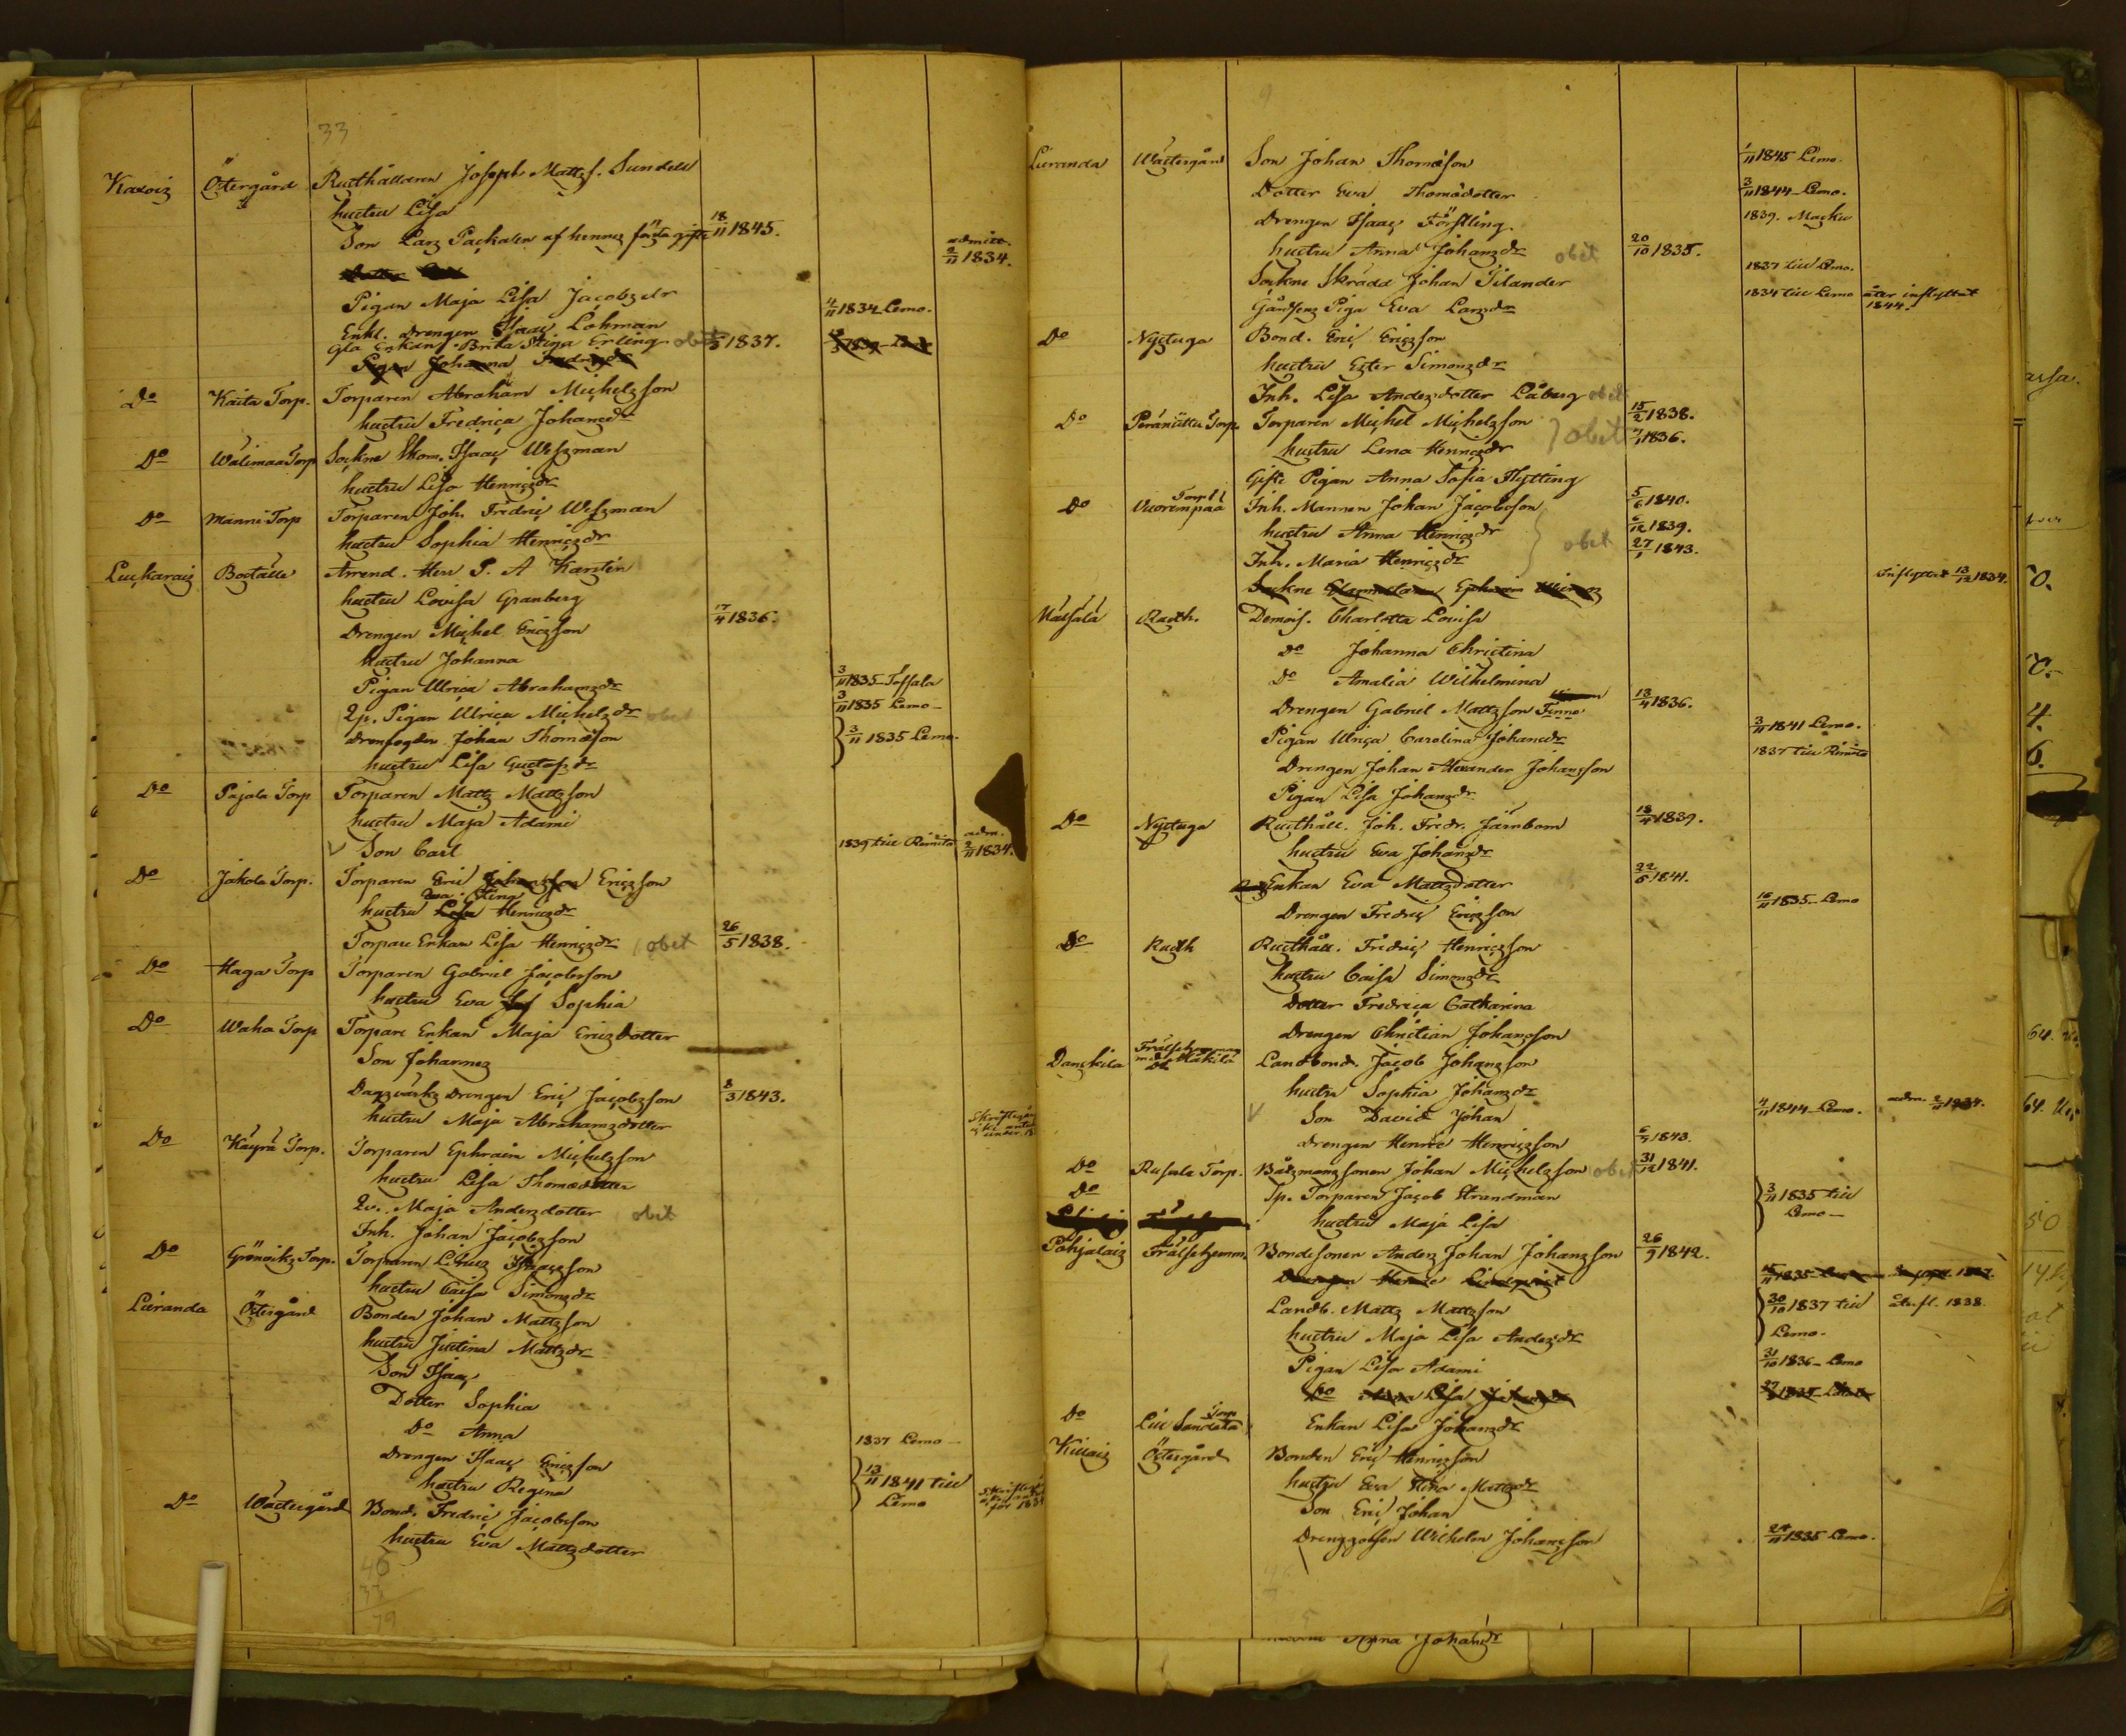 33
Karois Östergård Rusthållaren Joseph Matts. Sundell
hustru Lisa
Son Lars Paschalen af hennes förda gifte 18/11 1845.
admitt. 2/11 1834.
Pigan Maja Lisa Jacobsdr 4/11 1834 Lemo.
Enkl. Drengen Isaac Lohman
Gla Enkan Brita Stina Erling obit 1837.
Pigan Johanna
Do Kaita Torp. Torparen Abraham Michelsson
hustru Fredrica Johansdr
Do Wälimaa Torp Sockne Skom. Isaac Wessman
hustru Lisa Henricsdr
Do Manni Torp Torparen Joh. Fredric Wessman
hustru Sophia Henricsdr
Luckarais Boställe Arrend. Herr P. A Karstén
hustru Lovisa Granberg
Drengen Michel Ericsson 17/4 1836.
hustru Johanna
Pigan Ulrica Abrahamsdr 3/11 1835 Töffala
Qp. Pigan Ulrica Michelsdr obit 3/11 1835 Lemo
Drenfogden Johan Thomasson 3/11 1835 Lemo.
hustru Lisa Gustafsdr
Do Pajala Torp Torparen Matts Mattsson
hustru Maja Adami
Son Carl 1839 till Rimito adm. 2/11 1834.
Do Jakola Torp. Torparen Eric Johansson Ericsson
Eva Stina
hustru Lisa Henricsdr
Torpare Enkan Lisa Henricsdr obit 26/5 1838.
Do Haga Torp Torparen Gabriel Jacobsson
hustru Eva Sophia
Do Waha Torp Torpare Enkan Maja Ericsdotter
Son Johannes
Dagsvärks Drengen Eric Jacobsson 8/3 1843.
hustru Maja Abrahamsdotter
Do Käyrä Torp. Torparen Ephraim Michelsson
hustru Lisa Thomædotter
Qv. Maja Andersdotter obit
Inh. Johan Jacobsson
Do Grönviks Torp. Torparen Linus Isaacsson
hustru Caisa Simonsdr
Luiranda Östergård Bonden Johan Mattsson
hustru Justina Mattsdr
Son Isaac
Dotter Sophia
Do Anna
Drengen Isaac Ericsson 1837 Lemo
hustru Regina 13/11 1841 till Lemo
Do Wästergård Bond. Fredric Jacobsson
hustru Eva Mattsdotter
46
33
79
9
Luiranda Wästergård Son Johan Thomæson 1/11 1845 Lemo.
Dotter Eva Thomædotter 3/11 1844 Lemo.
Drengen Isaac Förstling. 1839. Masku
hustru Anna Johansdr obit 20/10 1835.
Sockne Skrädd Johan Tilander 1837 till Lemo.
Gårdsens Piga Eva Larsdr 1834 till Lemo åter inflyttat 1844.
Do Nystuga Bond. Eric Ericsson
hustru Ester Simonsdr
Inh. Lisa Andersdotter Låberg obit
Do Peränittu Torp. Torparen Michel Michelsson obit 15/2 1838.
hustru Lena Henricsdr 1836.
Gift Pigan Anna Sofia Flytting
Do Torp Vuorenpää Inh. Mannen Johan Jacobsson 5/6 1840.
hustru Anna Henricsdr obit 6/12 1839.
Inh. Maria Henricsdr 27/1 1843.
Sockne Ephraim Inflyttat 13/12 1834.
Rusth. Demois. Charlotta Lovisa
Do Johanna Christina
Do Amalia Wilhelmina
Drengen Gabriel Mattsson Finne 13/4 1836.
Pigan Ulrica Carolina Johansdr 3/11 1841 Lemo.
Drengen Johan Alexander Johansson 1837 till Rimito
Pigan Lisa Johansdr
Do Nystuga Rusthåll. Joh. Fredr. Järnbom 18/4 1839.
hustru Eva Johansdr
Enkan Eva Mattsdotter 22/6 1841.
Drengen Fredric Ericsson 16/11 1835 Lemo
Do Rusth Rusthåll. Fredric Henricsson
hustru Caisa Simonsdr
Dotter Fredrica Catharina
Drengen Christian Johansson
Danskila Landbond. Jacob Johansson
hustru Sophia Johansdr
Son David Johan 4/11 1844 Lemo. adm. 2/11 1834.
Drengen Henric Henricsson 1843.
Do Rusula Torp. Båtzmanssonen Johan Michelsson obit 31/12 1841.
Do Tp. Torparen Jacob Strandman 3/11 1835 till Lemo
hustru Maja Lisa
Pohjalais Frälsehemm. Bondesonen Anders Johan Johansson 26/9 1842.
Drengen Henric Lindqvist
Landb. Matts Mattsson 30/10 1837 till Lemo. återfl. 1838.
hustru Maja Lisa Andersdr
Pigan Lisa Adami 31/10 1836 Lemo
Do Anna Lisa
Do Torp Enkan Lisa Johansdr
Killais Östergård Bonden Eric Henricsson
hustru Eva Stina Mattsdr
Son Eric Johan
Drenggossen Wilhelm Johansson 24/11 1835 Lemo.
Anna Johansdr